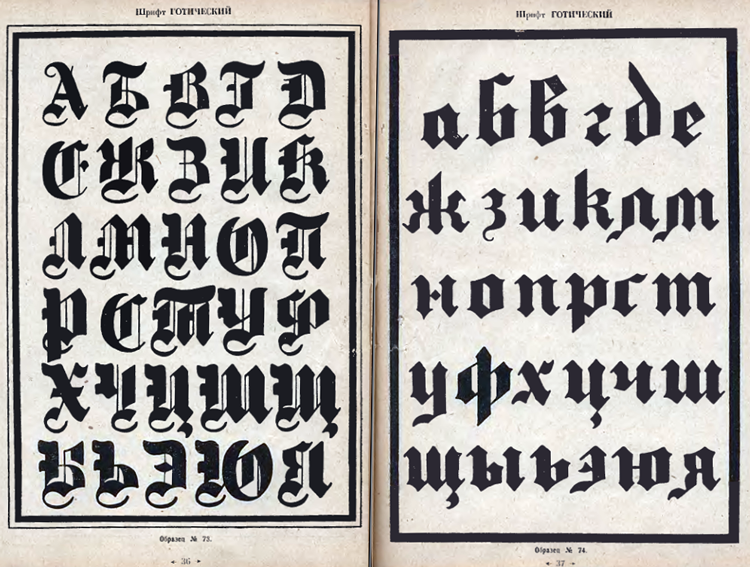 Шрифт ГОТИЧЕСКИЙ
А Б В Г Д
Е Ж З И К
Л М Н О П
Р С Т У Ф
Х Ч Ц Ш Щ
Ъ Ь Э Ю Я
Образец № 73.
36
Шрифт ГОТИЧЕСКИЙ
а б в г д е
ж з и к л м
н о п р с т
у ф х ц ч ш
щ ы ь э ю я
Образец № 74.
37